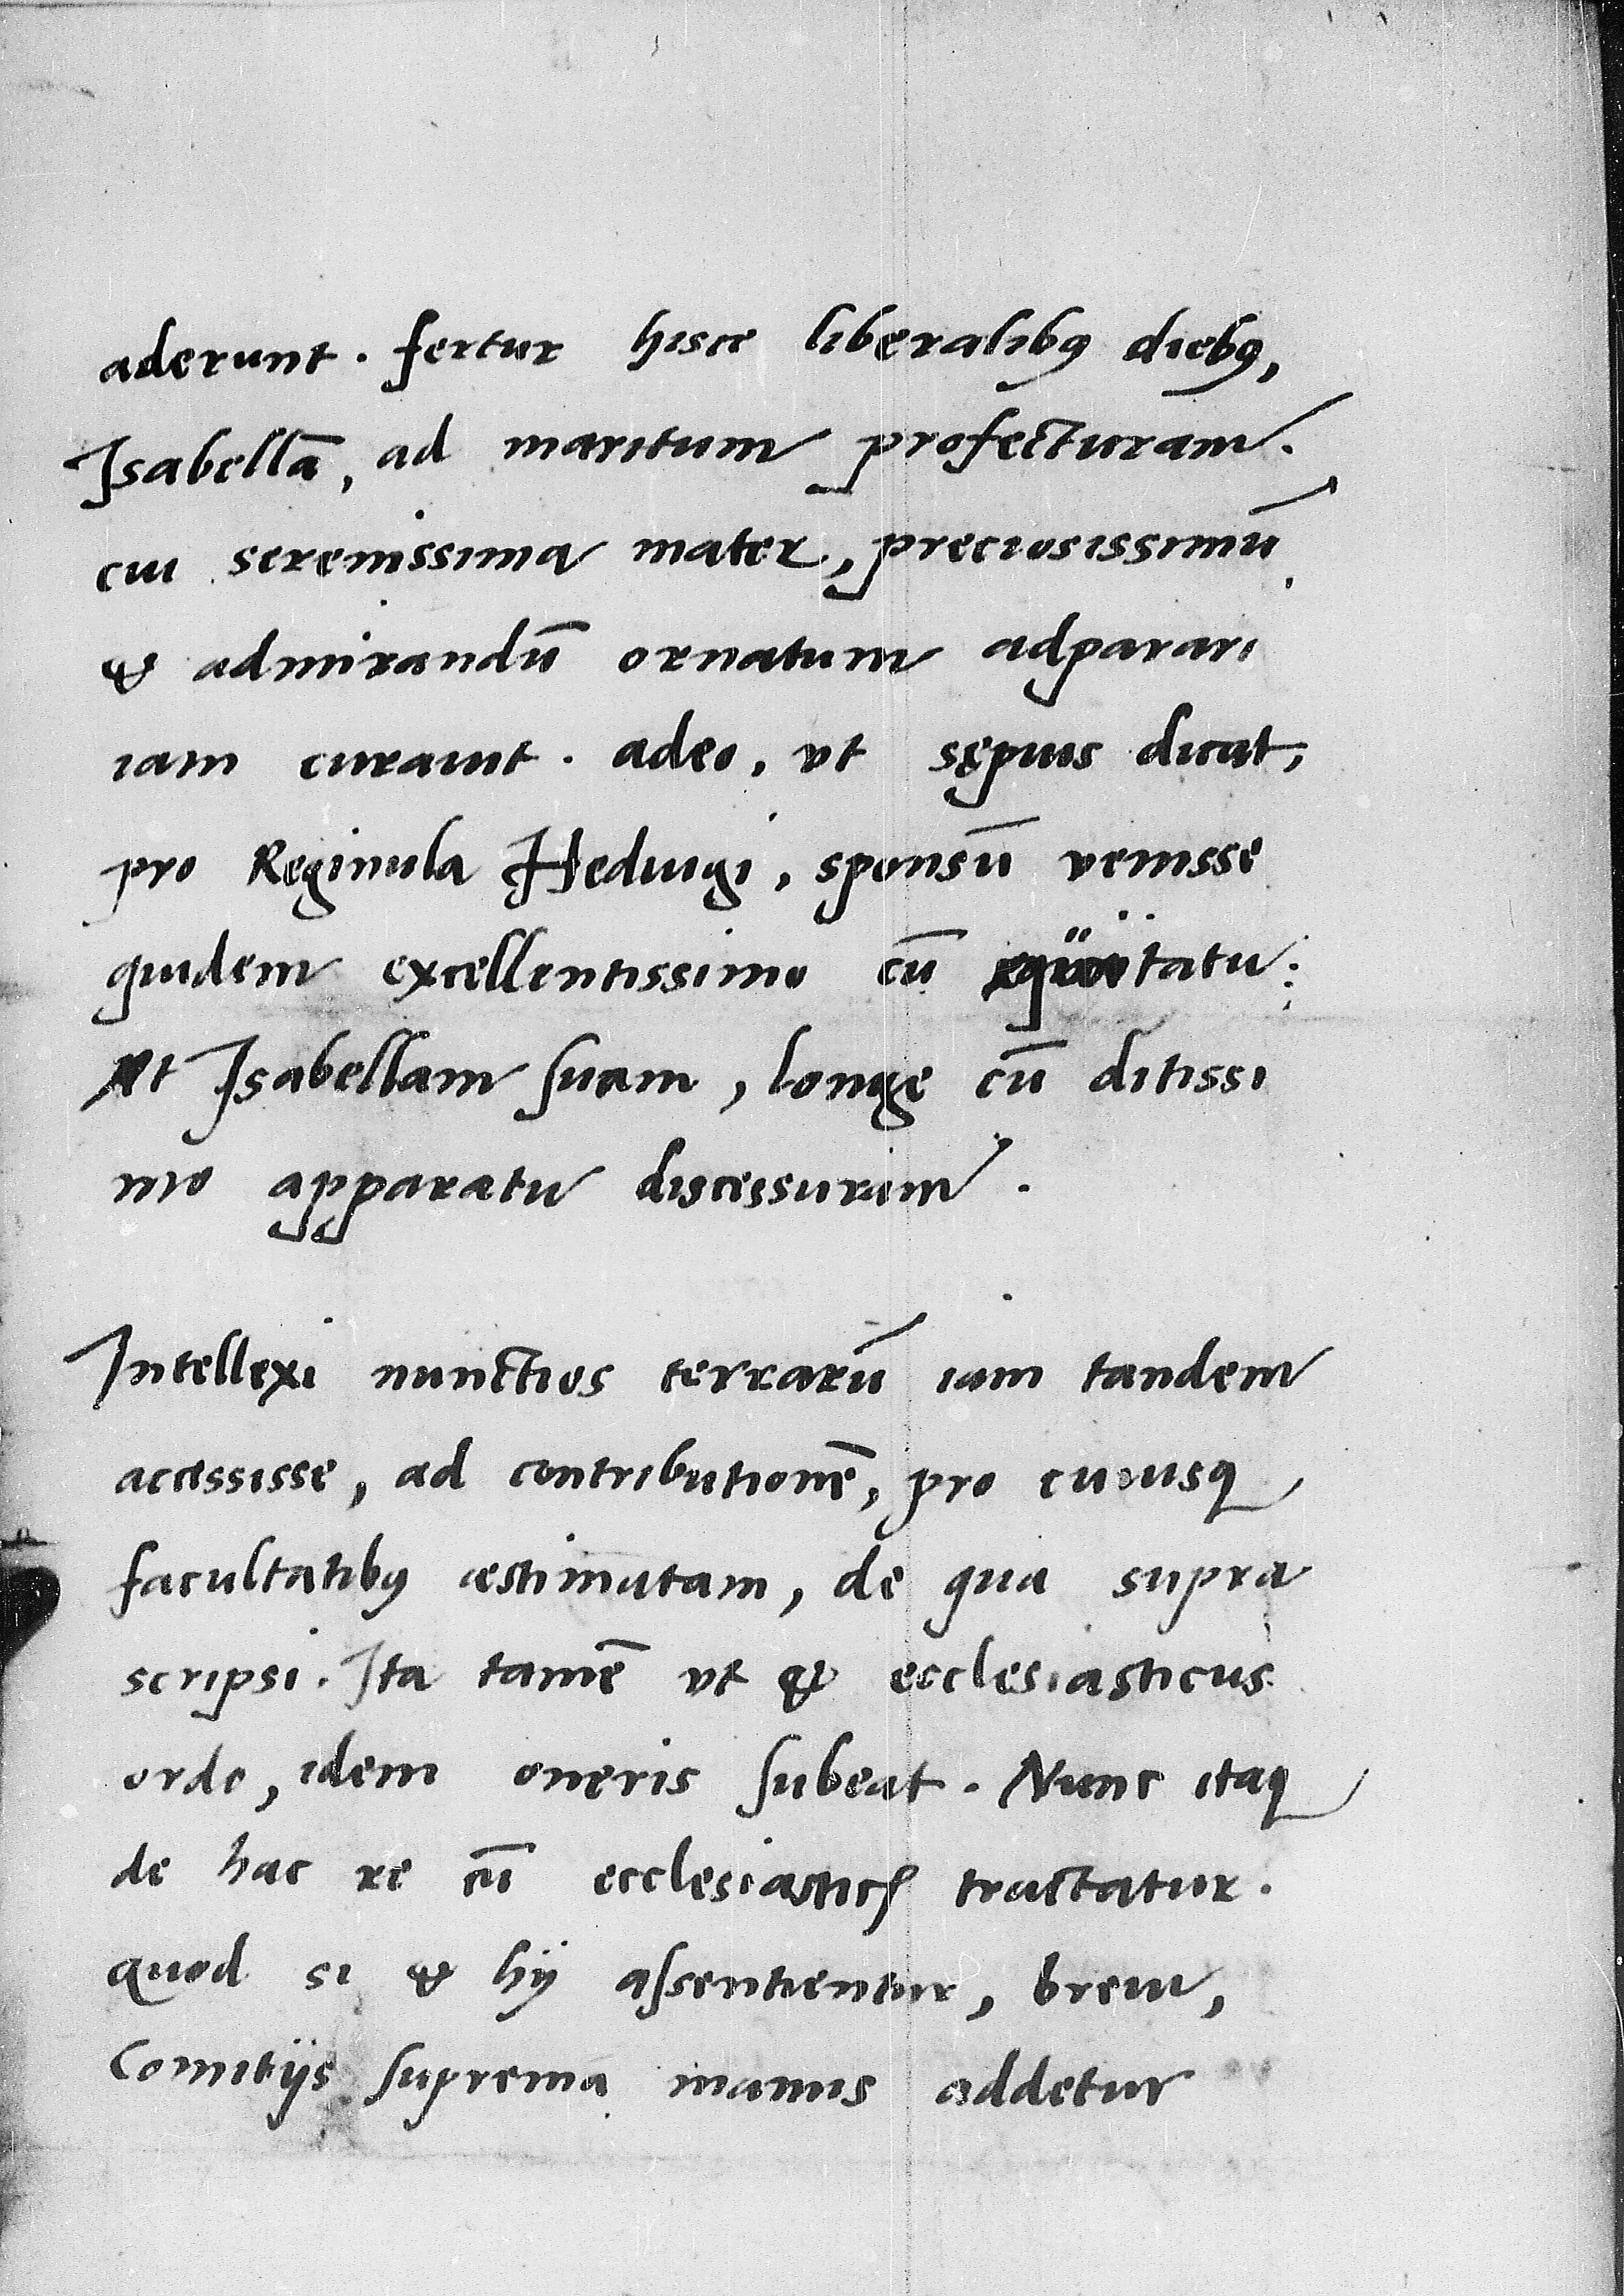 aderunt. fertur hisce liberalibꝰ diebꝰ,
Isabellā, ad maritum profecturam.
cui serenissima mater, preciosissimū
& admirandū ornatum adparari
iam curauit. adeo, vt sępius dicat,
pro Reginula Heduigi, sponsū venisse
quidem excellentissimo cū equitatu:
At Isabellam suam, longe cū ditissi
mo apparatu discessuram.
Intellexi nunctios terrarū iam tandem
accessisse, ad contributionē, pro cuiusqꝫ
facultatibꝰ æstimatam, de qua supra
scripsi. Ita tamē vt & ecclesiasticus
ordo, idem oneris subeat. Nunc itaqꝫ
de hac re cū ecclesiasticꝭ tractatur.
quod si & hij assentientur, breui,
Comitijs suprema manus addetur